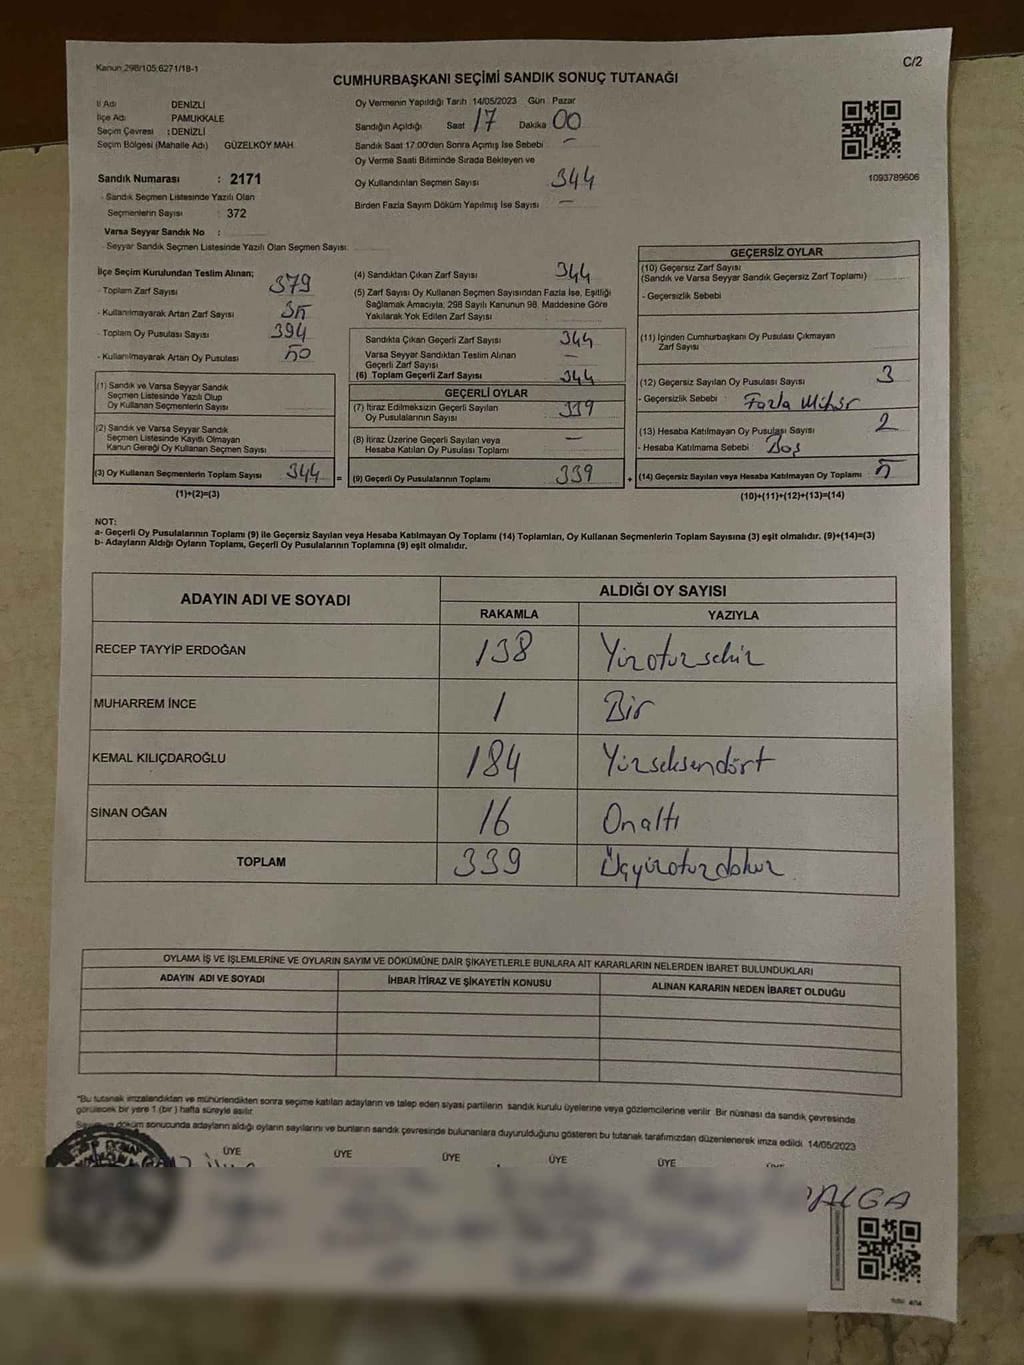 Kanun 298/105;6271/18-1
C/2
CUMHURBAŞKANI SEÇİMİ SANDIK SONUÇ TUTANAĞI
İl Adı DENİZLİ
İlçe Adı PAMUKKALE
Seçim Çevresi : DENİZLİ
Seçim Bölgesi (Mahalle Adı) GÜZELKÖY MAH.
Sandık Numarası : 2171
- Sandık Seçmen Listesinde Yazılı Olan
Seçmenlerin Sayısı : 372
Varsa Seyyar Sandık No :
- Seyyar Sandık Seçmen Listesinde Yazılı Olan Seçmen Sayısı:
Oy Vermenin Yapıldığı Tarih 14/05/2023 Gün Pazar
Sandığın Açıldığı Saat 17 Dakika 00
Sandık Saat 17:00'den Sonra Açımış İse Sebebi —
Oy Verme Saati Bitiminde Sırada Bekleyen ve
Oy Kullandırılan Seçmen Sayısı 344
Birden Fazla Sayım Döküm Yapılmış İse Sayısı —
1093789606
İlçe Seçim Kurulundan Teslim Alınan;
- Toplam Zarf Sayısı 379
- Kullanılmayarak Artan Zarf Sayısı 35
- Toplam Oy Pusulası Sayısı 394
- Kullanılmayarak Artan Oy Pusulası 50
(1) Sandık ve Varsa Seyyar Sandık
Seçmen Listesinde Yazılı Olup
Oy Kullanan Seçmenlerin Sayısı
(2) Sandık ve Varsa Seyyar Sandık
Seçmen Listesinde Kayıtlı Olmayan
Kanun Gereği Oy Kullanan Seçmen Sayısı
(3) Oy Kullanan Seçmenlerin Toplam Sayısı 344
(1)+(2)=(3)
(4) Sandıktan Çıkan Zarf Sayısı 344
(5) Zarf Sayısı Oy Kullanan Seçmen Sayısından Fazla İse, Eşitliği
Sağlamak Amacıyla, 298 Sayılı Kanunun 98. Maddesine Göre
Yakılarak Yok Edilen Zarf Sayısı :
Sandıkta Çıkan Geçerli Zarf Sayısı 344
Varsa Seyyar Sandıktan Teslim Alınan
Geçerli Zarf Sayısı —
(6) Toplam Geçerli Zarf Sayısı 344
GEÇERLİ OYLAR
(7) İtiraz Edilmeksizin Geçerli Sayılan
Oy Pusulalarının Sayısı 339
(8) İtiraz Üzerine Geçerli Sayılan veya
Hesaba Katılan Oy Pusulası Toplamı —
= (9) Geçerli Oy Pusulalarının Toplamı 339
GEÇERSİZ OYLAR
(10) Geçersiz Zarf Sayısı
(Sandık ve Varsa Seyyar Sandık Geçersiz Zarf Toplamı)
- Geçersizlik Sebebi
(11) İçinden Cumhurbaşkanı Oy Pusulası Çıkmayan
Zarf Sayısı
(12) Geçersiz Sayılan Oy Pusulası Sayısı 3
- Geçersizlik Sebebi : Fazla Mühür
(13) Hesaba Katılmayan Oy Pusulası Sayısı 2
- Hesaba Katılmama Sebebi : Boş
+ (14) Geçersiz Sayılan veya Hesaba Katılmayan Oy Toplamı 5
(10)+(11)+(12)+(13)=(14)
NOT:
a- Geçerli Oy Pusulalarının Toplamı (9) ile Geçersiz Sayılan veya Hesaba Katılmayan Oy Toplamı (14) Toplamları, Oy Kullanan Seçmenlerin Toplam Sayısına (3) eşit olmalıdır. (9)+(14)=(3)
b- Adayların Aldığı Oyların Toplamı, Geçerli Oy Pusulalarının Toplamına (9) eşit olmalıdır.
ADAYIN ADI VE SOYADI ALDIĞI OY SAYISI
RAKAMLA YAZIYLA
RECEP TAYYİP ERDOĞAN 138 Yüzotuzsekiz
MUHARREM İNCE 1 Bir
KEMAL KILIÇDAROĞLU 184 Yüzseksendört
SİNAN OĞAN 16 Onaltı
TOPLAM 339 Üçyüzotuzdokuz
OYLAMA İŞ VE İŞLEMLERİNE VE OYLARIN SAYIM VE DÖKÜMÜNE DAİR ŞİKAYETLERLE BUNLARA AİT KARARLARIN NELERDEN İBARET BULUNDUKLARI
ADAYIN ADI VE SOYADI İHBAR İTİRAZ VE ŞİKAYETİN KONUSU ALINAN KARARIN NEDEN İBARET OLDUĞU
"Bu tutanak imzalandıktan ve mühürlendikten sonra seçime katılan adayların ve talep eden siyasi partilerin sandık kurulu üyelerine veya gözlemcilerine verilir. Bir nüshası da sandık çevresinde
görülecek bir yere 1 (bir ) hafta süreyle asılır.
döküm sonucunda adayların aldığı oyların sayılarını ve bunların sandık çevresinde bulunanlara duyurulduğunu gösteren bu tutanak tarafımızdan düzenlenerek imza edildi. 14/05/2023
ÜYE ÜYE ÜYE ÜYE ÜYE